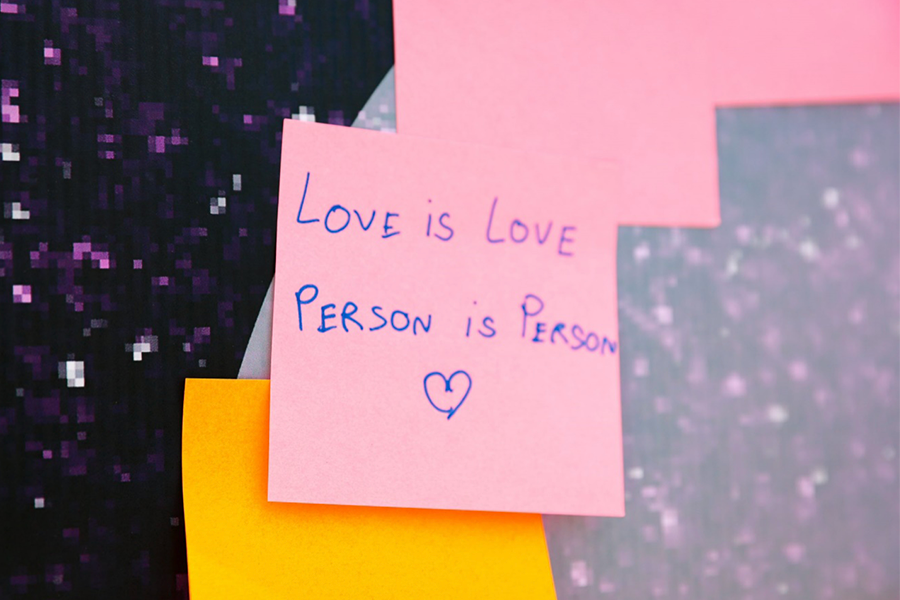 LOVE is LOVE
PERSON is PERSON